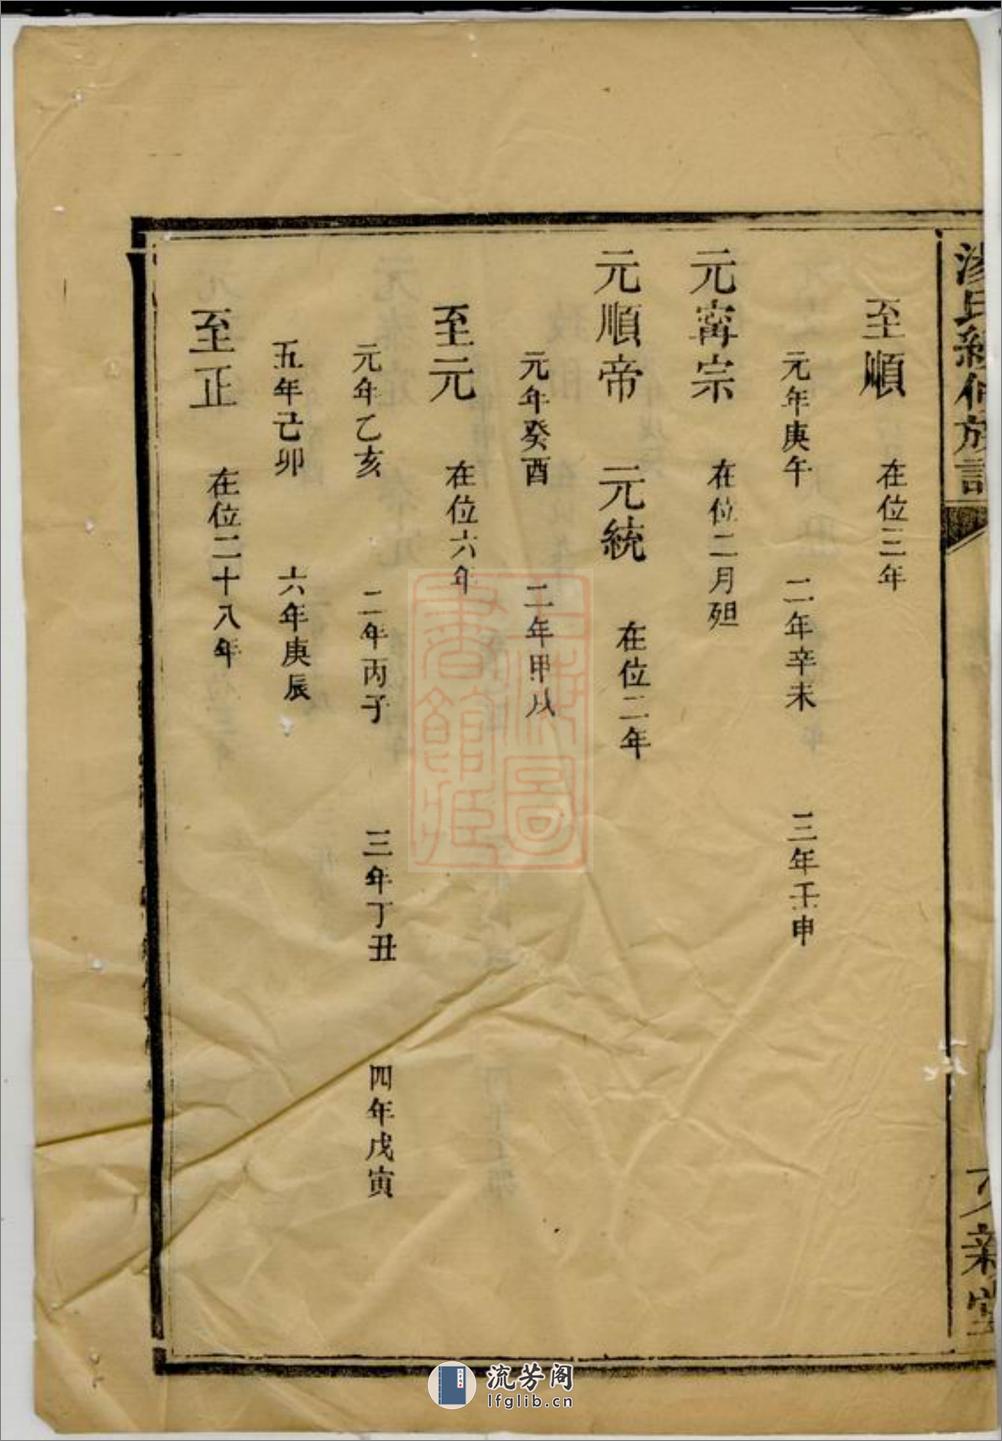 氏 族譜
至順 在位三年
元年庚午 二年辛未 三年壬申
元甯宗 在位二月殂
元順帝 元統 在位二年
元年癸酉 二年甲戌
至元 在位六年
元年乙亥 二年丙子 三年丁丑 四年戊寅
五年己卯 六年庚辰
至正 在位二十八年
上海圖
書館藏
流芳阁
lfglib.cn